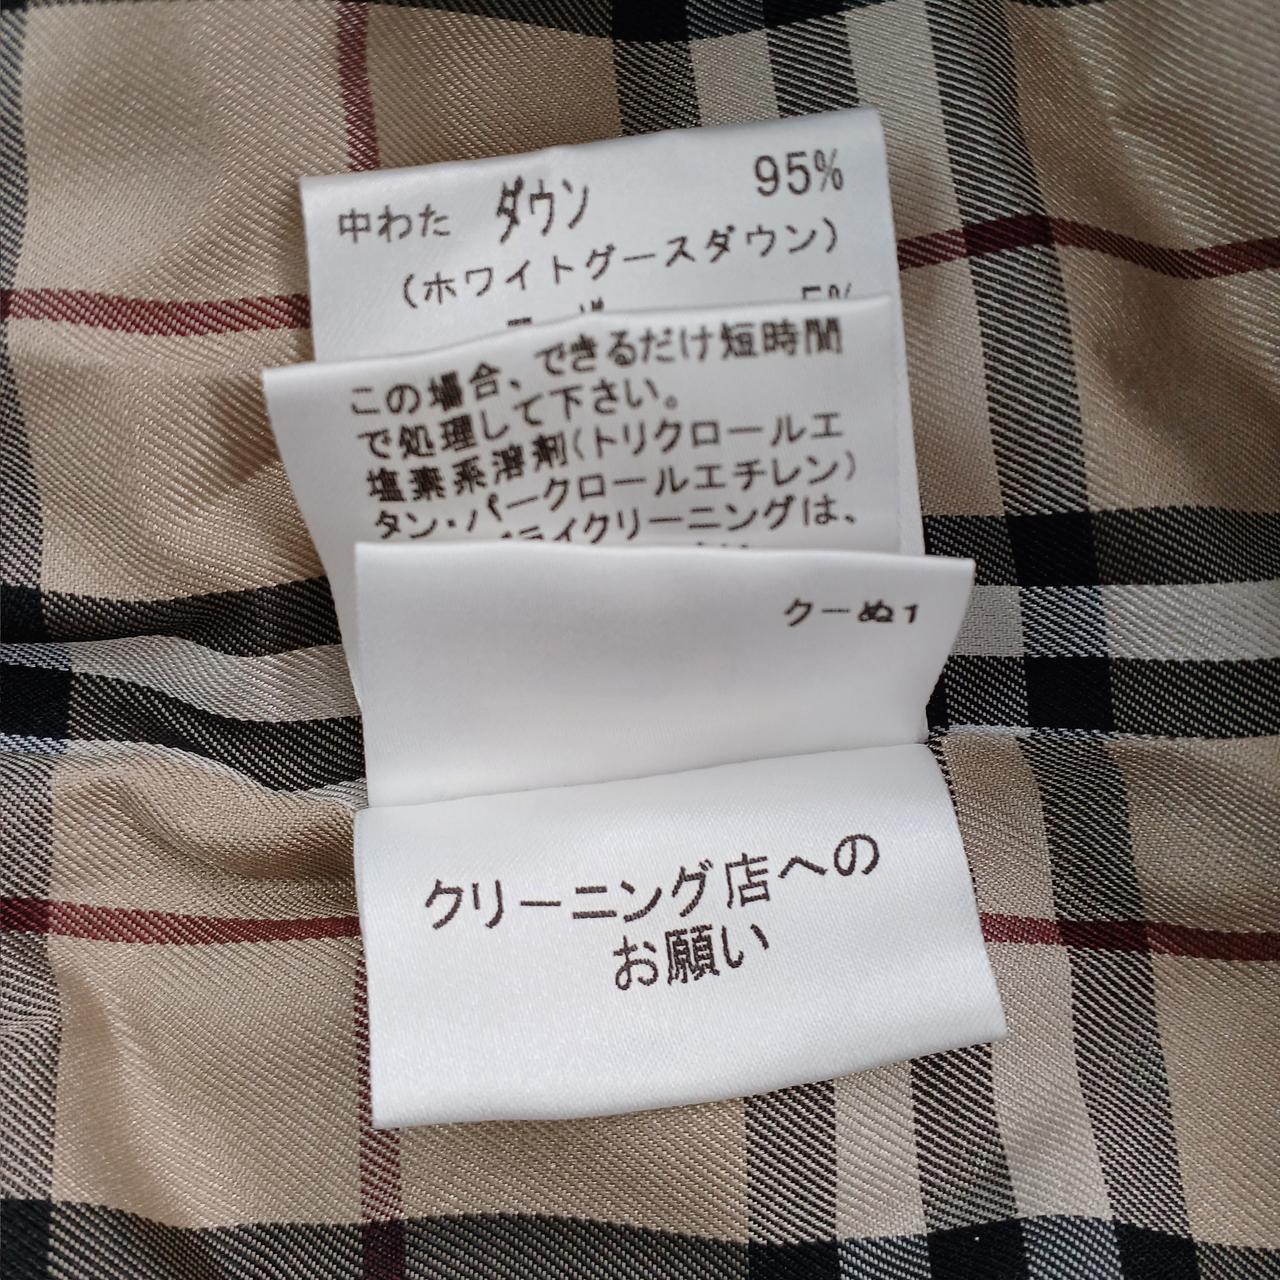 中わた ダウン 95%
(ホワイトグースダウン)
5%
この場合、できるだけ短時間
で処理して下さい。
塩素系溶剤(トリクロールエ
タン・パークロールエチレン)
ライクリーニングは、
クーぬ1
クリーニング店への
お願い